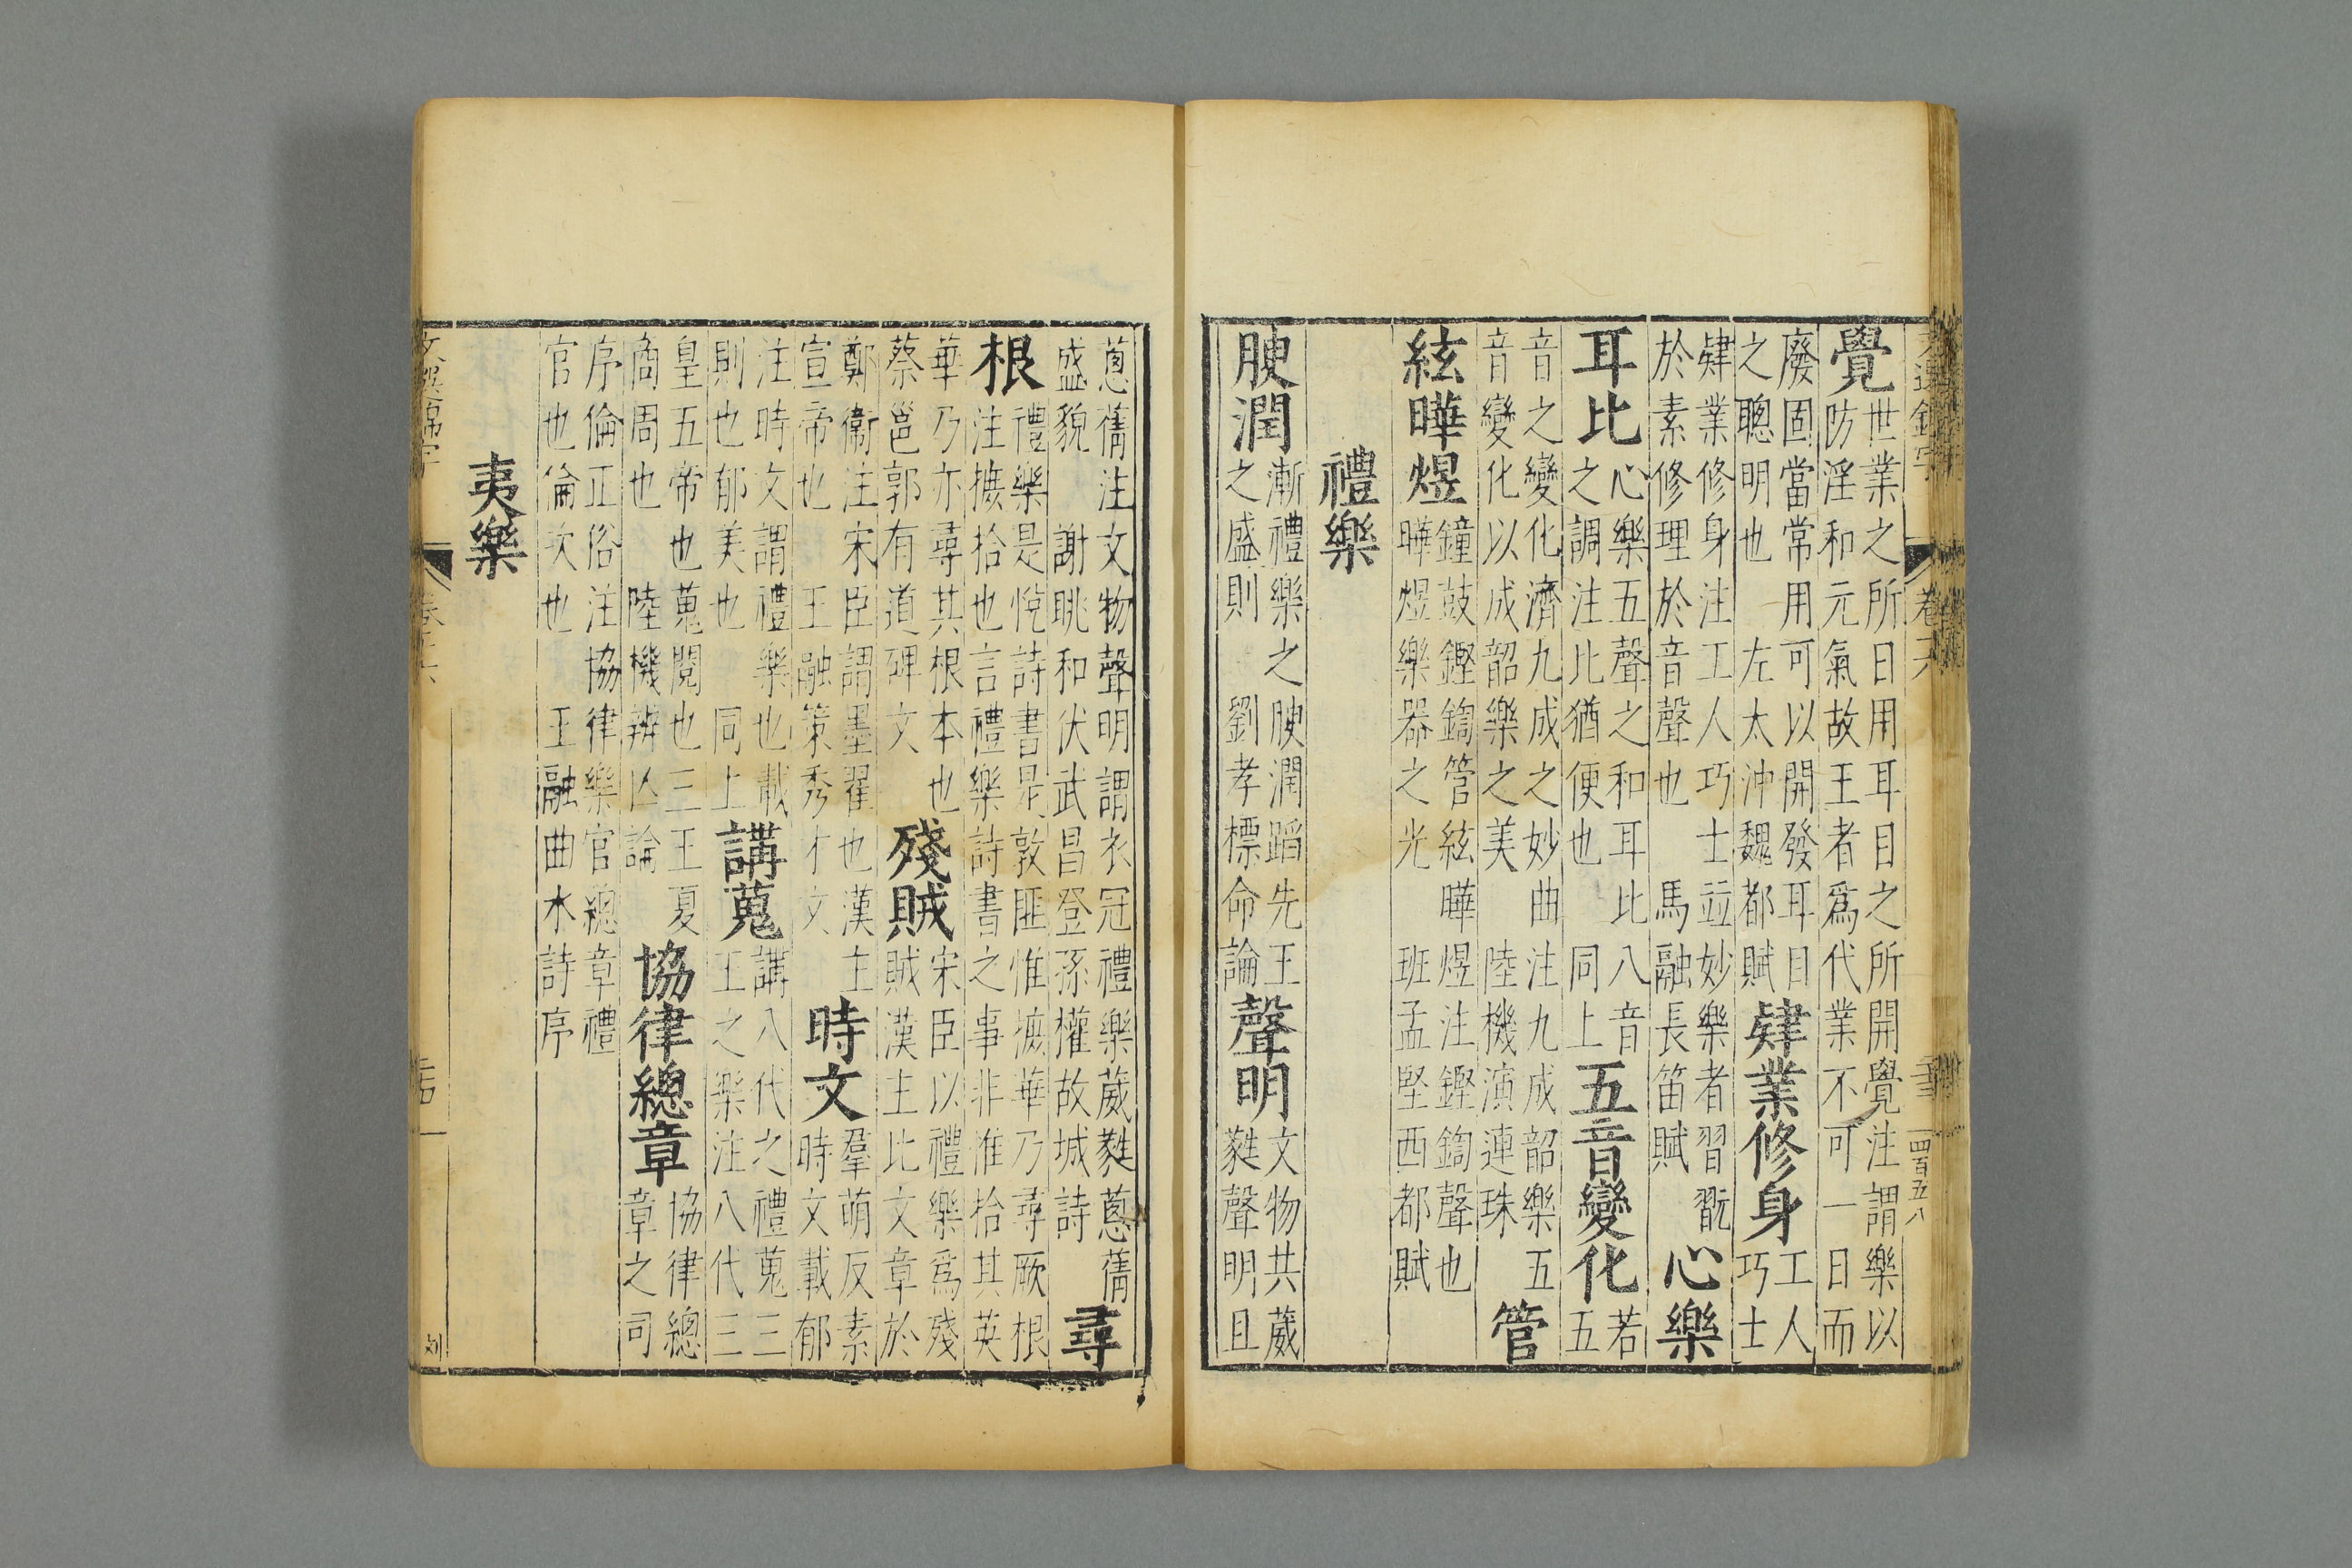 文選錦字 卷十六 四百五八
覺世業之所日用耳目之所開覺注謂樂以防淫和元氣故王者爲代業不可一日而
廢固當常用可以開發耳目之聰明也 左太沖魏都賦肄業修身工人巧士
肄業修身注工人巧士竝妙樂者習翫於素修理於音聲也 馬融長笛賦心樂
耳比心樂五聲之和耳比八音之調注比猶便也 同上五音變化若五
音之變化濟九成之妙曲注九成韶樂五音變化以成韶樂之美 陸機演連珠管
絃曄煜鐘鼓鏗鍧管絃曄煜注鏗鍧聲也曄煜樂器之光 班孟堅西都賦
禮樂
腴潤漸禮樂之腴潤蹈先王之盛則 劉孝標命論聲明文物共葳蕤聲明且
蔥蒨注文物聲明謂衣冠禮樂葳蕤蔥蒨盛貌 謝眺和伏武昌登孫權故城詩尋
根禮樂是悅詩書是敦匪惟摭華乃尋厥根注摭拾也言禮樂詩書之事非惟拾其英
華乃亦尋其根本也蔡邕郭有道碑文殘賊宋臣以禮樂爲殘賊漢主比文章於
鄭衞注宋臣謂墨翟也漢主宣帝也 王融策秀才文時文羣萌反素時文載郁
注時文謂禮樂也載則也郁美也 同上講蒐講八代之禮蒐三王之樂注八代三
皇五帝也蒐閱也三王夏商周也 陸機辨亡論協律總章協律總章之司
序倫正俗注協律樂官總章禮官也倫次也 王融曲水詩序
夷樂